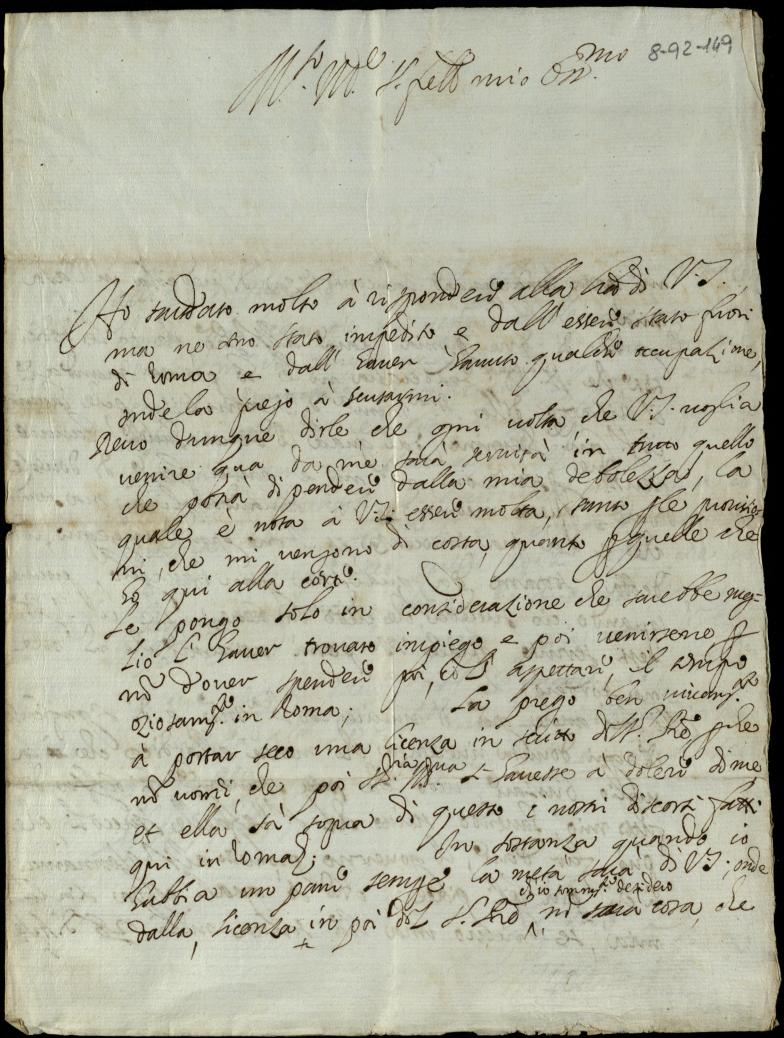 8-92-149
Ho tardato molto à rispondere alla di V.S.
ma ne sono stato impedito e dall'essere stato fuori
di Roma e dall'haver havuto qualche occupazione,
onde la prego à scusarmi.
Devo dunque dirle che ogni volta che V.S. voglia
venire qua da me sarà servita in tutto quello
che potrà dipendere dalla mia debolezza, la
quale è nota à V.S. essere molta, tanto le
che mi vengono di costà, quanto quelle che
ho qui alla corte.
Le pongo solo in considerazione che sarebbe meg-
lio l'haver trovato impiego e poi venirsene
nõ dover spendere poi, aspettare il tempo
in Roma; La prego ben
à portar seco una licenza in scritto
nõ vorrei, che poi havesse à dolere di me,
et ella sà sopra di questo i nostri discorsi fatti
qui in Roma. In sostanza quando io
habbia un pane sempre la metà sarà di V.S.; onde
ch'io desidero
dalla licenza in poi nõ sarà cosa, che